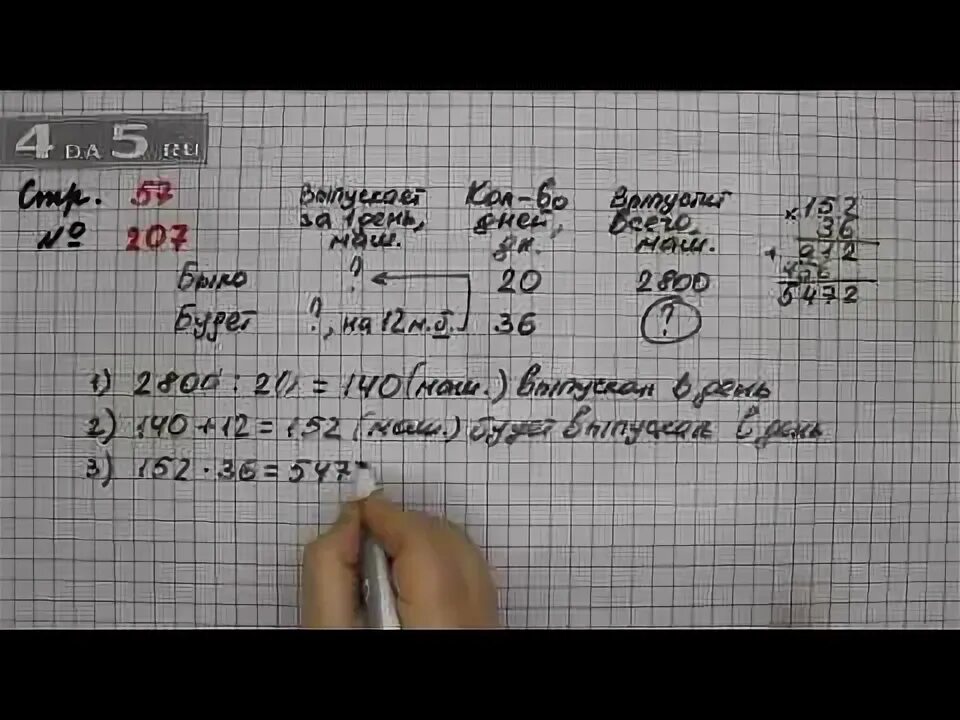 4 DA 5 .RU
Стр. 57
№ 207
Выпускает за 1 день, маш.
Кол-во дней, дн.
Выпустит всего, маш.
Было ? 20 2800
Будет ?, на 12 м. б. 36 ?
× 152
36
+ 912
456
5472
1) 2800 : 20 = 140 (маш.) выпускал в день
2) 140 + 12 = 152 (маш.) будет выпускал в день
3) 152 · 36 = 547